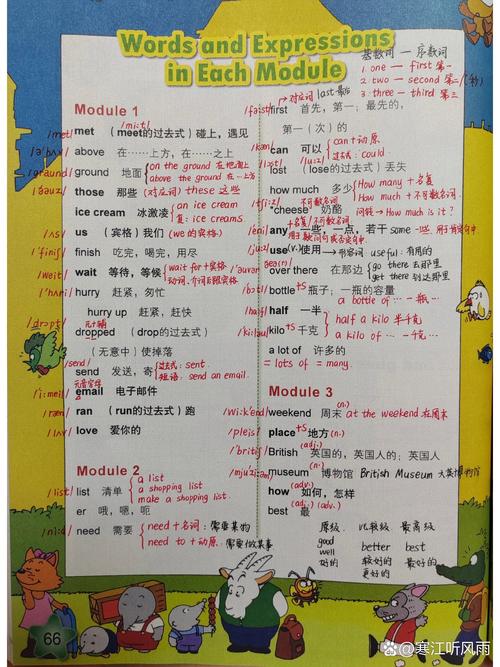 Words and Expressions
in Each Module
基数词 — 序数词
1. one — first 第一
2. two — second 第二/(秒)
3. three — third 第三
Module 1
/mi:t/
/met/ met (meet的过去式) 碰上，遇见
/ə'bʌv/ above 在……上方，在……之上
/graund/ ground 地面 on the ground 在地面上
above the ground 在地面上
/ðəuz/ those 那些 (对应词) these 这些
ice cream 冰激凌 an ice cream
复: ice creams
/ʌs/ us (宾格) 我们 (we的宾格)
/'finiʃ/ finish 吃完，喝完，用尽
/weit/ wait 等待，等候 wait for+宾格
动词、介词后跟宾格
/'hʌri/ hurry 赶紧，匆忙
hurry up 赶紧，赶快
/dropt/ dropped (drop的过去式)
(无意中) 使掉落
/send/ send 发送，寄 过去式: sent
短语: send an email.
元音字母
/'i:meil/ email 电子邮件
/ræn/ ran (run的过去式) 跑
/lʌv/ love 爱你的
Module 2
/list/ list 清单 a list
a shopping list
make a shopping list
er 哦，嗯，呃
/ni:d/ need 需要 need+名词: 需要某物
need to+动原: 需要做某事
对应词 last 最后
/fə:st/ first 首先，第一；最先的，
第一（次）的
/kæn/ can 可以 can+动原
过去式: could
/lɔst/ /lu:z/ lost (lose的过去式) 丢失
how much 多少 How many+名复
How much+不可数名词
/tʃi:z/ 不可数名词
*cheese 奶酪 问钱→How much is it?
+名复/不可数名词
/'eni/ any 一些，一点，若干 some 一些, 用于肯定句中
用于疑问句或否定句中
/ju:z/ use (v.) 使用 → 形容词 useful: 有用的
over there 在那边 go there 去那里
get there 到达那里
/'bɔtl/ bottle+s 瓶子；一瓶的容量
a bottle of …一瓶…
/ha:f/ half 一半 half a kilo 半千克
/'ki:ləu/ kilo+s 千克 a kilo of …一千克…
a lot of 许多的
= lots of = many.
Module 3
/wi:k'end/ weekend 周末 at the weekend 在周末
/pleis/ place+s 地方 (n.)
(adj.)
/'britiʃ/ British 英国的，英国人的；英国人
/mju'zi:əm/ museum 博物馆 British Museum 大英博物馆
(n.)
how 如何，怎样 (adv.)
best 最 (adj.) (adv.)
原级 比较级 最高级
good
well better best
好的 较好的 最好的
更好的
66
@寒江听风雨